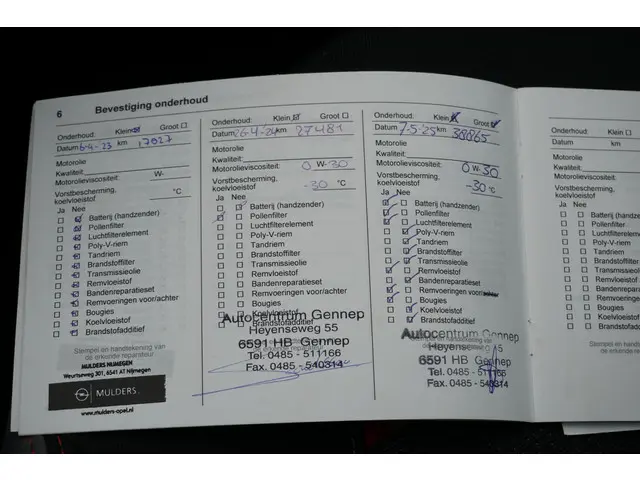 6 Bevestiging onderhoud
Onderhoud: Klein Groot
Datum 6-4-23 km 17027
Motorolie
Kwaliteit:
Motorolieviscositeit: W-
Vorstbescherming,
koelvloeistof °C
Ja Nee
Batterij (handzender)
Pollenfilter
Luchtfilterelement
Poly-V-riem
Tandriem
Brandstoffilter
Transmissieolie
Remvloeistof
Bandenreparatieset
Remvoeringen voor/achter
Bougies
Koelvloeistof
Brandstofadditief
Stempel en handtekening van
de erkende reparateur
MULDERS NIJMEGEN
Weurtseweg 301, 6541 AT Nijmegen
MULDERS
www.mulders-opel.nl
Onderhoud: Klein Groot
Datum 26-4-24 km 27481
Motorolie
Kwaliteit:
Motorolieviscositeit: 0 W-30
Vorstbescherming,
koelvloeistof -30 °C
Ja Nee
Batterij (handzender)
Pollenfilter
Luchtfilterelement
Poly-V-riem
Tandriem
Brandstoffilter
Transmissieolie
Remvloeistof
Bandenreparatieset
Remvoeringen voor/achter
Bougies
Koelvloeistof
Brandstofadditief
Autocentrum Gennep
Heyenseweg 55
6591 HB Gennep
Tel. 0485 - 511166
Fax. 0485 - 540314
Onderhoud: Klein Groot
Datum 7-5-25 km 38865
Motorolie
Kwaliteit:
Motorolieviscositeit: 0 W-30
Vorstbescherming,
koelvloeistof -30 °C
Ja Nee
Batterij (handzender)
Pollenfilter
Luchtfilterelement
Poly-V-riem
Tandriem
Brandstoffilter
Transmissieolie
Remvloeistof
Bandenreparatieset
Remvoeringen voor/achter
Bougies
Koelvloeistof
Brandstofadditief
Autocentrum Gennep
6591 HB Gennep
Tel. 0485 - 511166
Fax. 0485 - 540314
Onderhoud: Klein
Datum km
Motorolie
Kwaliteit:
Motorolieviscositeit:
Vorstbescherming,
koelvloeistof
Ja Nee
Batterij (hand
Pollenfilter
Luchtfilterele
Poly-V-riem
Tandriem
Brandstoffilt
Transmissi
Remvloeis
Bandenre
Remvoeri
Bougies
Koelvloe
Brandst
Stempel en h
de erken